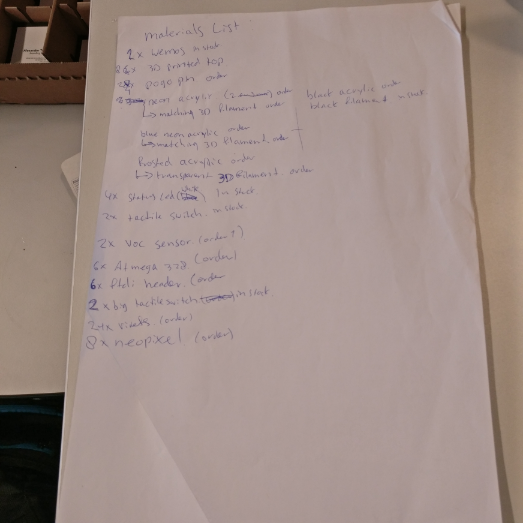 materials List
2x wemos in stock
3D printed top
pogo pin order
neon acrylic order
↳ matching 3D filament order
black acrylic order
black filament in stock
blue neon acrylic order
↳ matching 3D filament order
frosted acrylic order
↳ transparent 3D filament order
4x status led in stock
2x tactile switch in stock
2x VOC sensor (order?)
6x Atmega 328 (order)
6x ftdi header (order
2x big tactile switch in stock
(order)
8x neopixel (order)